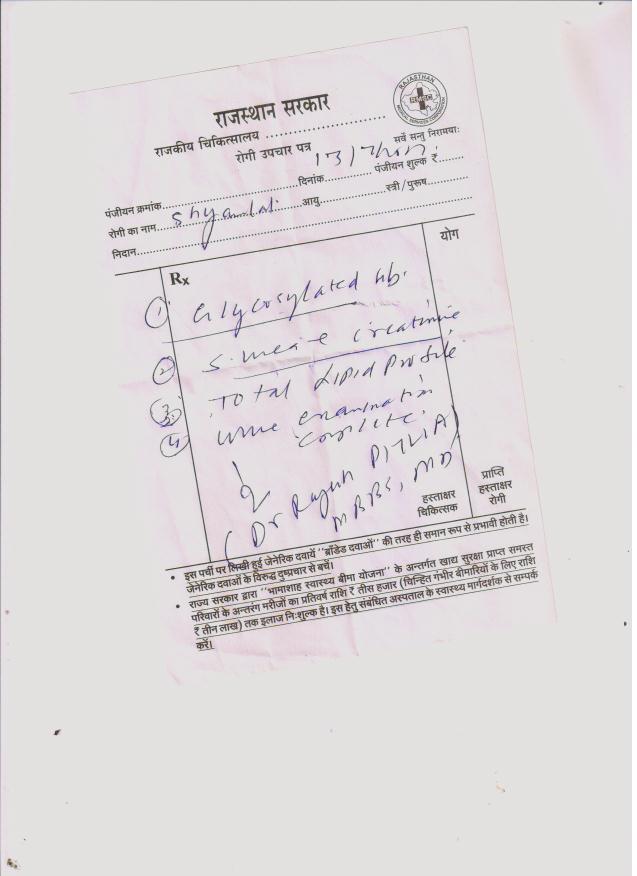 राजस्थान सरकार
राजकीय चिकित्सालय ........................
सर्वे सन्तु निरामयाः
रोगी उपचार पत्र
RAJASTHAN
MEDICAL SERVICES CORPORATION
RMSC
पंजीयन क्रमांक............................दिनांक............ पंजीयन शुल्क ₹......
रोगी का नाम.... Shyamlal ......आयु....................स्त्री/पुरूष...........
निदान....................................................
Rx
योग
① Glycosylated Hb.
② S. Creatinine
③ Total Lipid Profile
④ Urine examination
Complete.
(Dr Rajesh
MBBS, MD
हस्ताक्षर
चिकित्सक
प्राप्ति
हस्ताक्षर
रोगी
• इस पर्ची पर लिखी हुई जेनेरिक दवायें "ब्राँडेड दवाओं" की तरह ही समान रूप से प्रभावी होती है।
जेनेरिक दवाओं के विरुद्ध दुष्प्रचार से बचें।
• राज्य सरकार द्वारा "भामाशाह स्वास्थ्य बीमा योजना" के अन्तर्गत खाद्य सुरक्षा प्राप्त समस्त
परिवारों के अन्तरंग मरीजों का प्रतिवर्ष राशि ₹ तीस हजार (चिन्हित गंभीर बीमारियों के लिए राशि
₹ तीन लाख) तक इलाज निःशुल्क है। इस हेतु संबंधित अस्पताल के स्वास्थ्य मार्गदर्शक से सम्पर्क
करें।